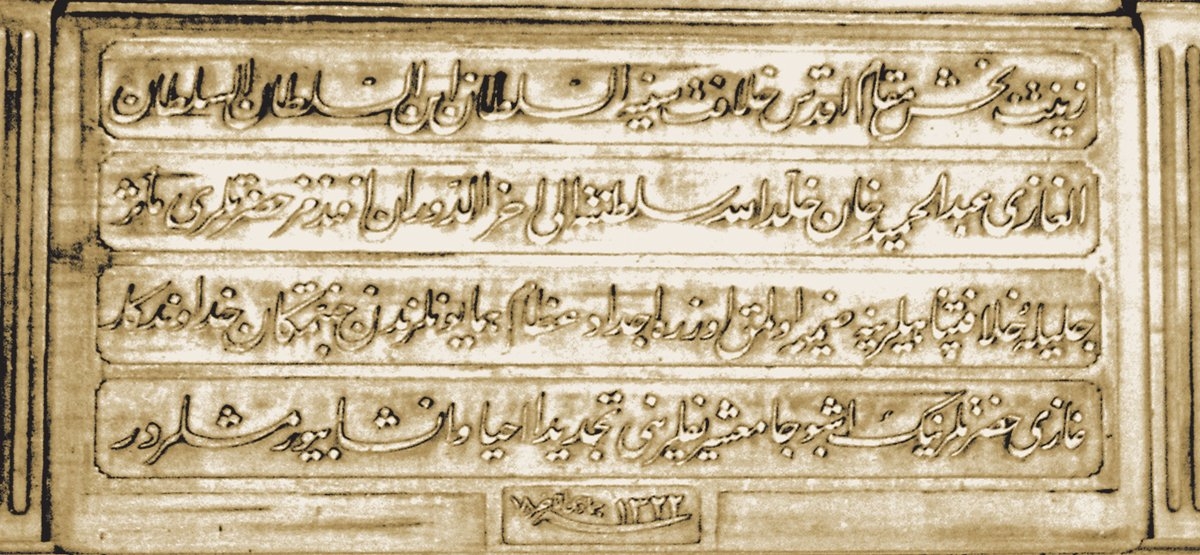 زينت بخش مقام اقدس خلافت سنيه السلطان ابن السلطان السلطان
الغازى عبدالحميد خان خلد الله سلطنته الى اخر الدوران افندمز حضرتلرى مآثر
جليلۀ خلافتپناهيلرينه ضميمه اولمق اوزره اجداد عظام همايونلرندن جنتمكان خداوندكار
غازى حضرتلرينك اشبو جامع شريفلرينى تجديدا احيا وانشا بيورمشلردر
١٣٢٢